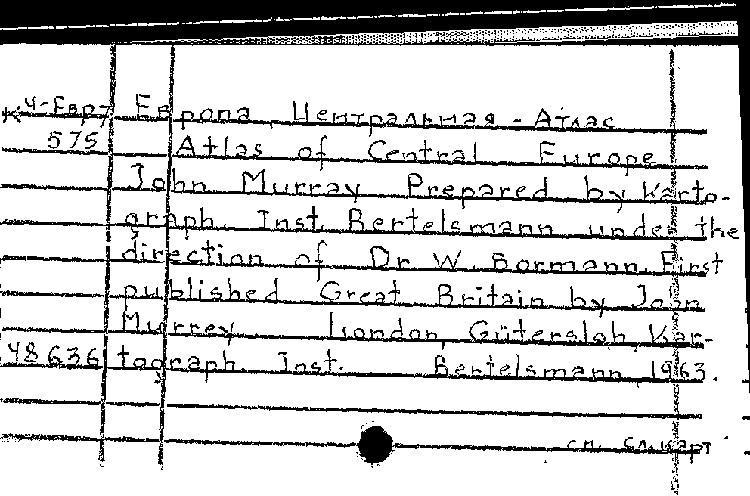 К Ч-Евр7 Европа Центральная - Атлас
575 Atlas of Central Europe
John Murray Prepared by Karto-
graph. Inst. Bertelsmann under the
direction of Dr W. Bormann. First
published Great Britain by John
Murrey London, Gütersloh, Kar-
48636 tograph. Inst. Bertelsmann, 1963.
см. сл. карт